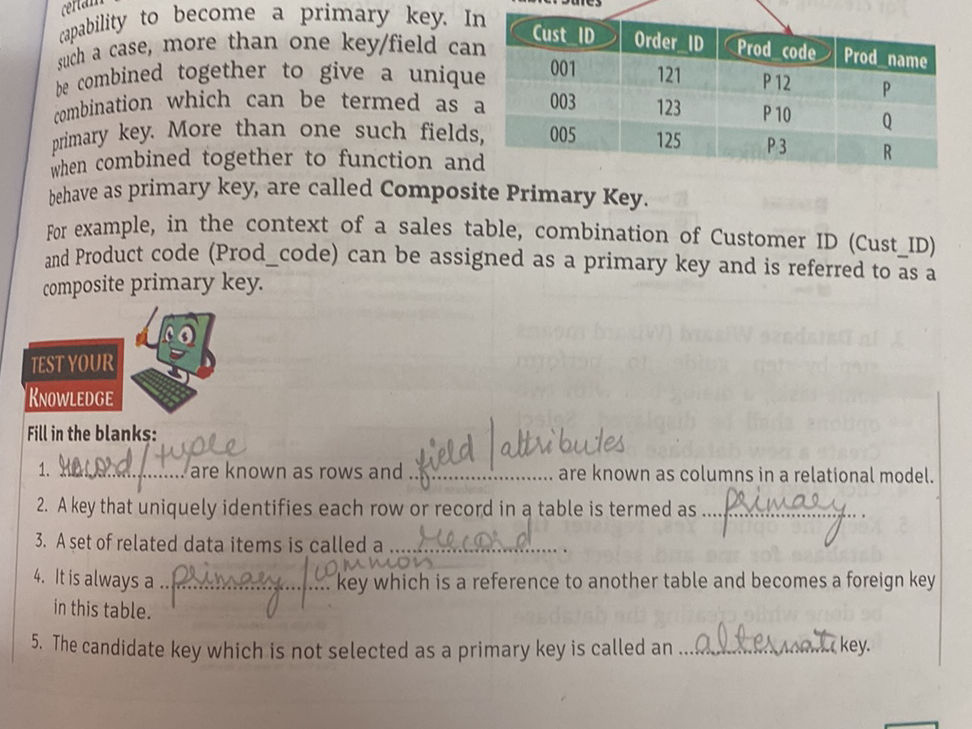 capability to become a primary key. In
such a case, more than one key/field can
be combined together to give a unique
combination which can be termed as a
primary key. More than one such fields,
when combined together to function and
behave as primary key, are called Composite Primary Key.
Cust_ID Order_ID Prod_code Prod_name
001 121 P 12 P
003 123 P 10 Q
005 125 P 3 R
For example, in the context of a sales table, combination of Customer ID (Cust_ID)
and Product code (Prod_code) can be assigned as a primary key and is referred to as a
composite primary key.
TEST YOUR
KNOWLEDGE
Fill in the blanks:
1. record/tuple are known as rows and field/attributes are known as columns in a relational model.
2. A key that uniquely identifies each row or record in a table is termed as primary.
3. A set of related data items is called a record.
4. It is always a primary/common key which is a reference to another table and becomes a foreign key
in this table.
5. The candidate key which is not selected as a primary key is called an alternate key.